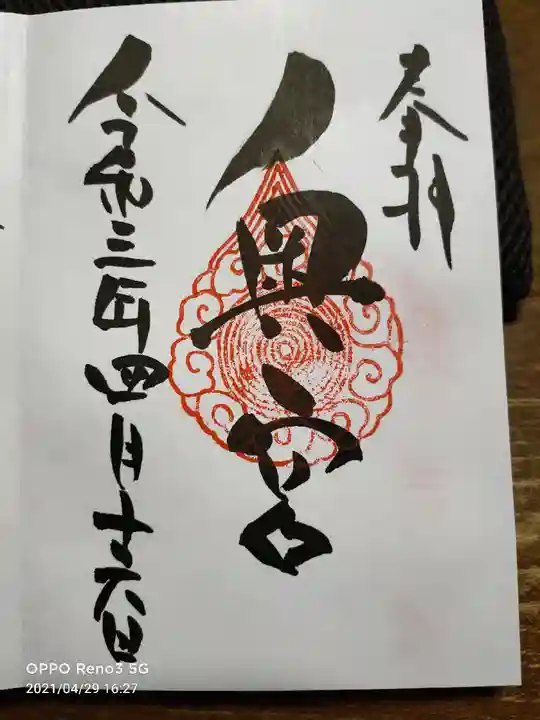 奉拝
奥宮
令和三年四月十六日
OPPO Reno3 5G
2021/04/29 16:27